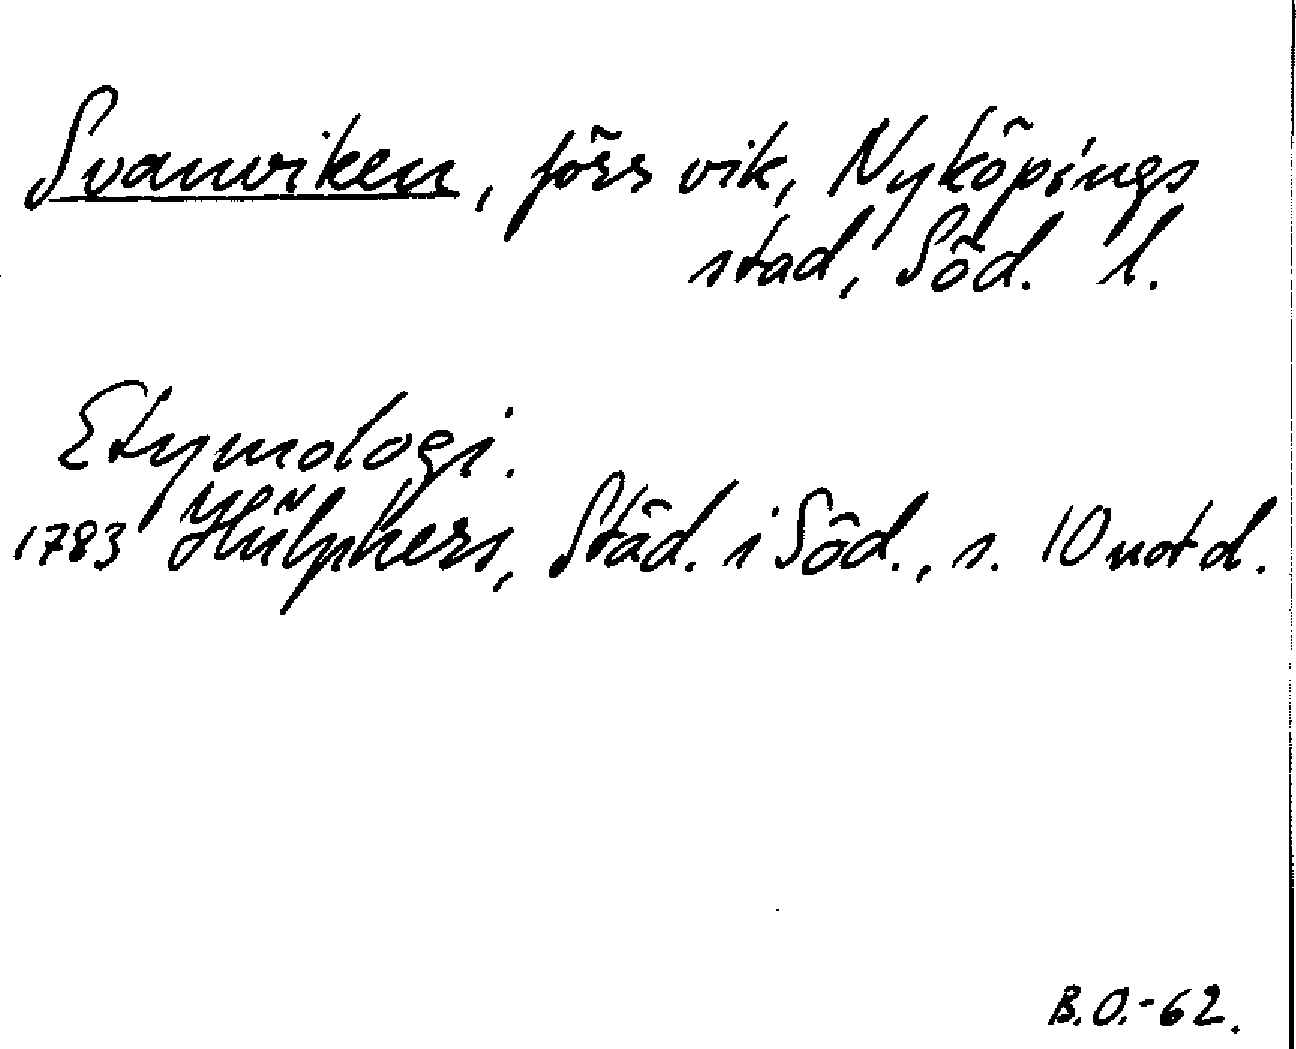 Svanviken, förr vik, Nyköpings
stad, Söd. l.
Etymologi.
1783 Hülphers, Städ. i Söd., s. 10 not d.
B.O.-62.